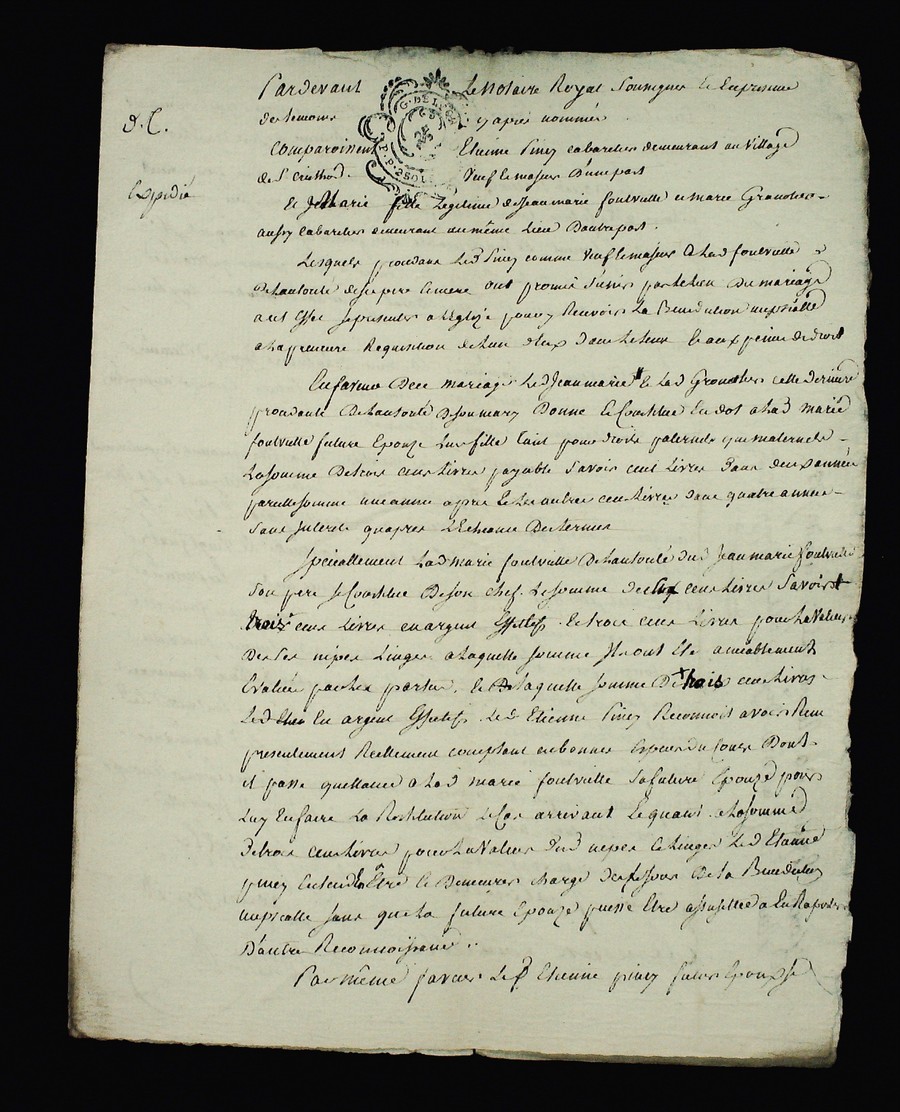 d. C.
Expedié
Pardevant Le Notaire Royal Soussigné Et En presence
des temoins cy apres nommés
comparoissent Etienne Piney cabaretier demeurant au village
de St Veuf Et majeur D'une part
Et Marie fille Legitime de Jean marie foulvulle et marie
aussy Cabaretier demeurant au même Lieu D'autre part.
Lesquels procedans Led Piney comme Veuf Et majeur Et lad foulvulle
De Lautorité de ses pere Et mere ont promis S'unir par Le Lien Du mariage
a cet Effet Se presenter a L'Eglize pour y Recevoir La Benediction nuptialle
a La premiere Requisition de L'un d'eux a L'autre Et aux peines de droit
En faveur Duquel mariage Led Jean marie Et Lad cette Derniere
procedante De Lautorité De Son mary Donne Et Constitue En dot a Lad marie
foulvulle future Epouze Leur fille tant pour droits paternels que maternels
La Somme De trois cens Livres payable Savoir cent Livres Dans deux années
pareille Somme une année apres Et Les autres cent Livres Dans quatre années
Sans Interets qu'apres L'Echeance Des termes
Specialement Lad marie foulvulle De Lautorité dud Jean marie foulvulle
Son pere Se Constitue De Son Chef La Somme de Six cens Livres Savoir
trois cens Livres en argent Effectif Et trois cens Livres pour La Valeur
De Ses nipes Linges a Laquelle Somme Ils ont Eté amiablement
Evalués par Les parties, Et De Laquelle Somme De trois cens Livres
En argent Effectif Led Etienne Piney Reconnoit avoir Reçu
presentement Reellement comptant en bonnes Especes du Cours Dont
il passe quittance a Lad marie foulvulle Sa future Epouze pour
Luy En faire La Restitution Le Cas arrivant Et quant a La Somme
De trois cens Livres pour La Valeur Desd nipes Et Linges Led Etienne
piney Entend En Être Et Demeurer chargé Des Le Jour De La Benediction
nuptialle Sans que La future Epouze puisse Etre assujettie a En Raporter
D'autre Reconnoissance..
Par même faveur Led Etienne piney futur Epoux